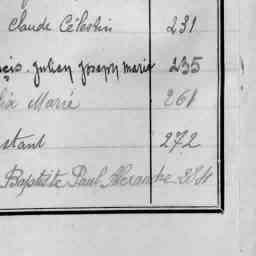 Claude Célestin 231
Julien Joseph Marie 235
Marie 261
stant 272
Baptiste Paul Alexandre